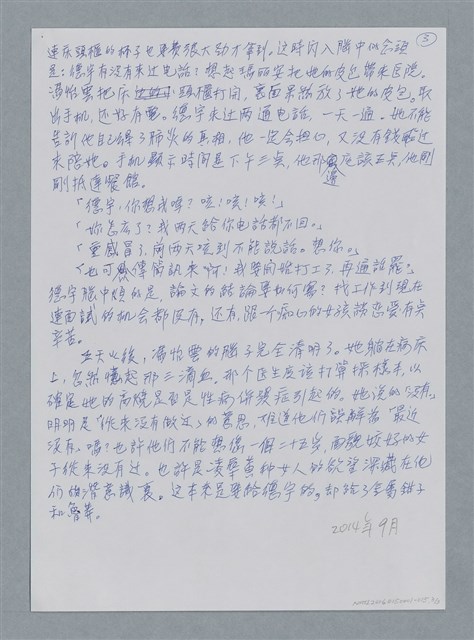 3
連床頭櫃的杯子也要費很大勁才拿到。這時閃入腦中的念頭
是：德宇有沒有來过电話？想起瑪丽安把她的皮包帶來医院。
湯怡雲把床头櫃打開，裏面果然放了她的皮包。取
出手机，还好有電。德宇来过两通电話，一天一通。她不能
告訴他自己得了肺炎的真相，他一定会担心，又沒有錢
来陪她。手机顯示時間是下午三点，他那邊應該五点，他剛
剛抵達餐館。
「德宇，你想我嗎？咳！咳！咳！」
「你怎么了？我两天給你电話都不回。」
「重感冒了，前两天咳到不能說話。想你。」
「也可以傳簡訊来啊！我要開始打工了，再通話罷？」
德宇腦中煩的是，論文的結論要如何寫？找工作到現在
連面試的机会都没有，还有，跟一个痴心的女孩談恋愛有点
辛苦。
五天以後，湯怡雲的腦子完全清明了。她躺在病床
上，忽然憶起那三滴血。那个医生應該打算採樣本，以
確定她的高燒是否是性病併發症引起的。她說的「没有」
明明是「從来没有做过」的意思，难道他们誤解為「最近
没有」嗎？也許他们不能想像一個二十五岁，面貌姣好的女
子從来没有过。也許是凌辱黃种女人的欲望深藏在他
们的潛意識裏。这本来是要給德宇的，却給了金屬鉗子
和
2014年9月